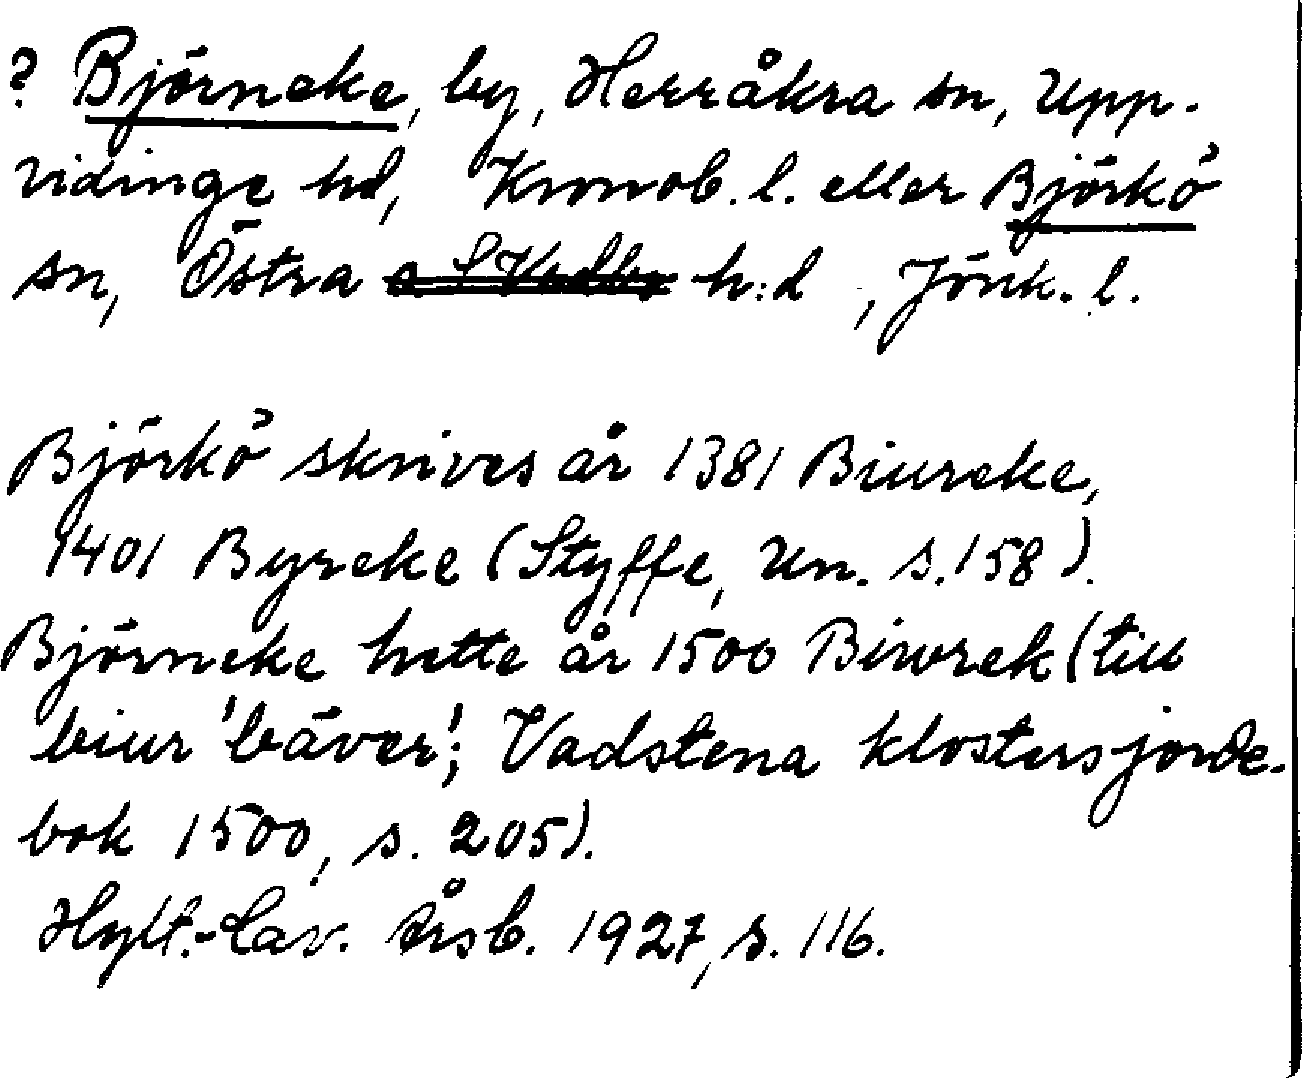 ? Björneke, by, Herråkra sn, Upp-
vidinge hd, Kronob. l. eller Björkö
sn, Östra h:d , Jönk. l.
Björkö skrives år 1381 Biureke,
1401 Byreke (Styffe, Un. s. 158).
Björneke hette år 1500 Biwrek (till
biur 'bäver'; Vadstena klosters jorde-
bok 1500, s. 205).
Hylt.-Cav. Årsb. 1927, s. 116.